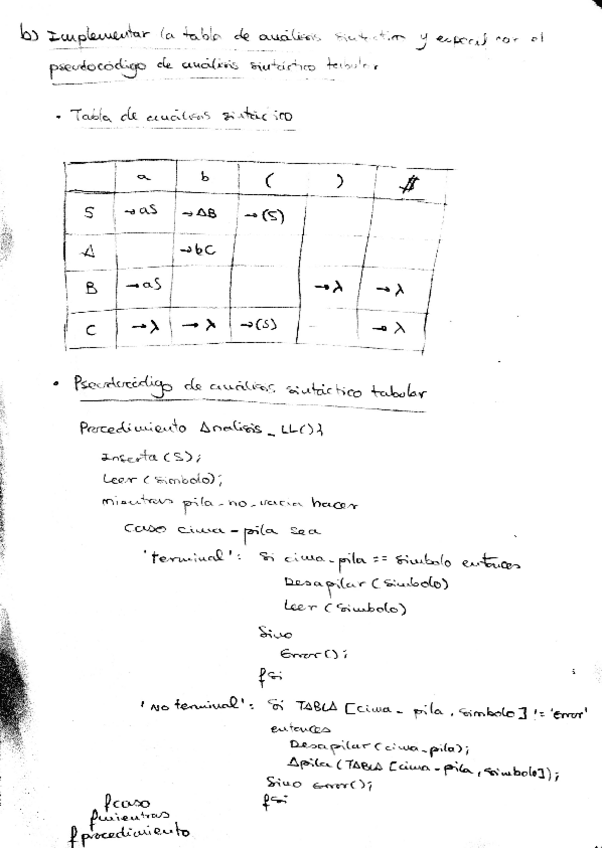 b) Implementar la tabla de análisis sintáctico y especificar el
pseudocódigo de análisis sintáctico tabular.
• Tabla de análisis sintáctico
a b ( ) $
S →aS →AB →(S)
A →bC
B →aS →λ →λ
C →λ →λ →(S) →λ
• Pseudocódigo de análisis sintáctico tabular
Procedimiento Analisis_LL(){
Inserta(S);
Leer(simbolo);
mientras pila_no_vacia hacer
caso cima-pila sea
'terminal': Si cima-pila == simbolo entonces
Desapilar(simbolo)
Leer(simbolo)
Sino
Error();
fsi
'No terminal': Si TABLA [cima-pila, simbolo] != 'error'
entonces
Desapilar(cima-pila);
Apila(TABLA [cima-pila, simbolo]);
Sino error();
fcaso fsi
fmientras
fprocedimiento